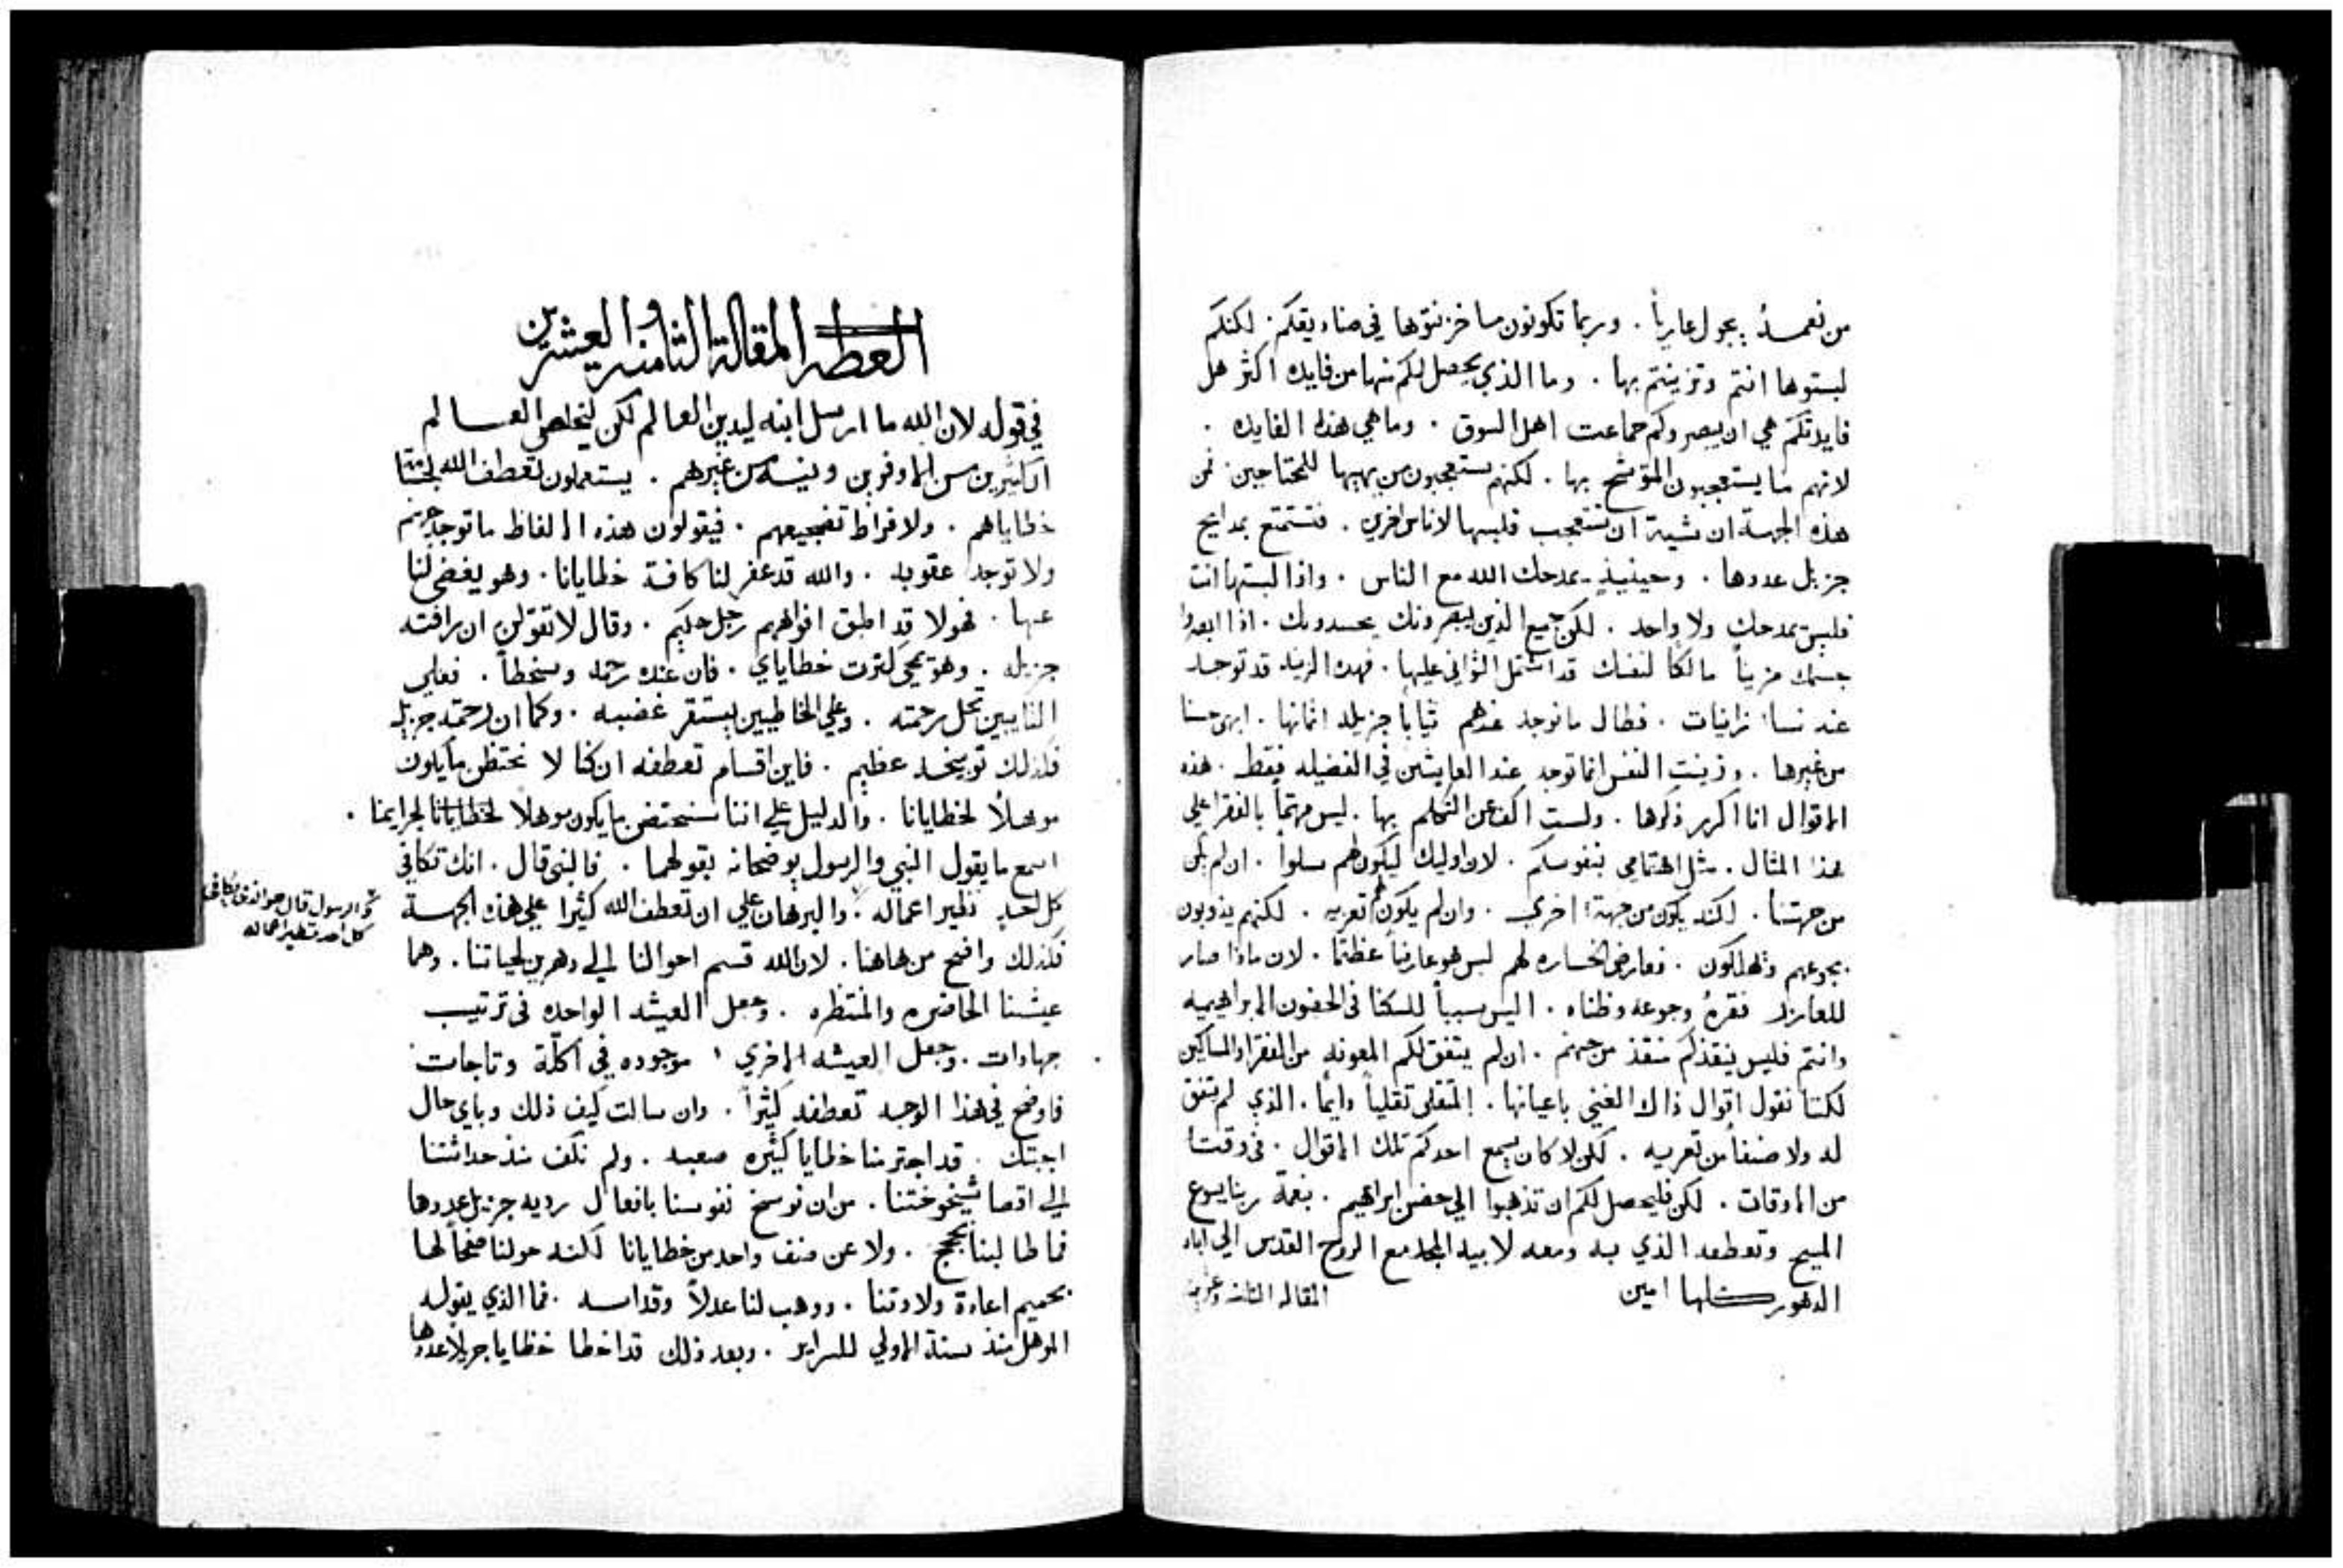 من نعمــدُ يجول عارياً . وربما تكونون ما خزنتوها في صناديقكم . لكنكم
لبستوها انتم وتزينتم بها . وما الذي يحصل لكم منها من فايده اكثر هل
فايدتكم هي ان يبصروكم جماعت اهل السوق . وما هي هذه الفايده .
لانهم ما يستعجبون المتوشح بها . لكنهم يستعجبون من يهبها للمحتاجين . فمن
هذه الجهة ان شيت ان تستعجب فلبسها لاناس اخرين . فتستمتع بمدايح
جزيل عددها . وحينيذٍ يمدحك الله مع الناس . واذا لبستها انت
فليس يمدحك ولا واحد . لكن جميع الذين يبصرونك يحسدونك . اذا ابصروا
جسمك مزيناً مالكاً لنفسك قد اشتمل التواني عليها . فهذه الزينه قد توجد
عند نساء زانيات . فطال ما توجد عندهم ثياباً جزيله اثمانها . ابهى حسنا
من غيرها . وزينت النفس انما توجد عند العايشين في الفضيله فقط . هذه
الاقوال انا اكرر ذكرها . ولست اكف عن التكلم بها . ليس مهتماً بالفقرا علي
هذا المثال . مثل اهتمامي بنفوسكم . لان اوليك ليكون لهم سلوا . ان لم يكن
من جهتنا . لكنه يكون من جهة اخري . وان لم يكون لهم تعزيه . لكنهم يذوبون
بجوعهم ويهلكون . فعارض الخساره لهم ليس هو عارضاً عظيما . لان ماذا صار
للعازر فقرهُ وجوعه وظناه . اليس سبباً للسكنا في الحضون الابراهيميه
وانتم فليس ينقذكم منقذ من جهنم . ان لم يتفق لكم المعونه من الفقرا والمساكين
لكننا نقول اقوال ذاك الغني باعيانها . المتقلى تقلياً دايماً . الذي لم يتفق
له ولا صنفاً من تعزيه . لكن لا كان يسمع احدكم تلك الاقوال . في وقت
من الاوقات . لكن فليحصل لكم ان تذهبوا الي حضن ابراهيم . بنعمة ربنا يسوع
المسيح وتعطفه الذي به ومعه لابيه المجد مع الروح القدس الي اباد
الدهور كلها امين
المقاله الثامنه وعشرين
العظه المقالة الثامنه والعشرين
في قوله لان الله ما ارسل ابنه ليدين العالم لكن ليخلص العــالم
الكثيرين من الماوفوين وينسه من غيرهم . يستعملون تعطف الله
خطاياهم . ولافراط تضجيعهم . فيقولون هذه الالفاظ ما توجد جهنم
ولا توجد عقوبه . والله قد غفر لنا كافة خطايانا . وهو يغضي لنا
عنها . فهولا قد اطبق افواههم رجل حكيم . وقال لا تقولن ان رافته
جزيله . وهو يمحي كثرت خطاياي . فان عنده رحمه وسخطاً . فعلي
التايبين تحل رحمته . وعلي الخاطيين يستقر غضبه . وكما ان رحمته جزيله
فكذلك توبيخــه عظيم . فاين اقسام تعطفه ان كنا لا نحتظي ما يكون
موهلاً لخطايانا . والدليل علي اننا سنحتضي ما يكون موهلاً لخطايانا لجرايمنا .
اسمع ما يقول النبي والرسول يوضحانه بقولهما . فالنبي قال . انك تكافي
كل احدٍ نظير اعماله . والبرهان علي ان تعطف الله كثيرا علي هذه الجهــة
ثم الرسول قال هو الذي يكافي
كل احد نظير اعماله
فكذلك واضح من هاهنا . لان الله قسم احوالنا الي دهرين لحياتنا . وهما
عيشنا الحاضره والمنتظره . وجعل العيشه الواحده في ترتيب
جهادات . وجعل العيشه الاخري موجوده في اكلّة وتاجات .
فاوضح في هذا الوجه تعطفه كثيراً . وان سالت كيف ذلك وباي حال
اجبتك . قد اجترمنا خطايا كثيره صعبه . ولم نكف منذ حداثتنا
الي اقصا شيخوختنا . من ان نوسخ نفوسنا بافعال رديه جزيل عددها
فما طالبنا بحجج . ولا عن صنف واحد من خطايانا لكنه خولنا صفحاً لها
بحميم اعادة ولادتنا . ووهب لنا عدلاً وقداسه . فما الذي يقوله
الموهل منذ سنة الاولي للسراير . وبعد ذلك قد اخطا خطايا جزيلاً عددها